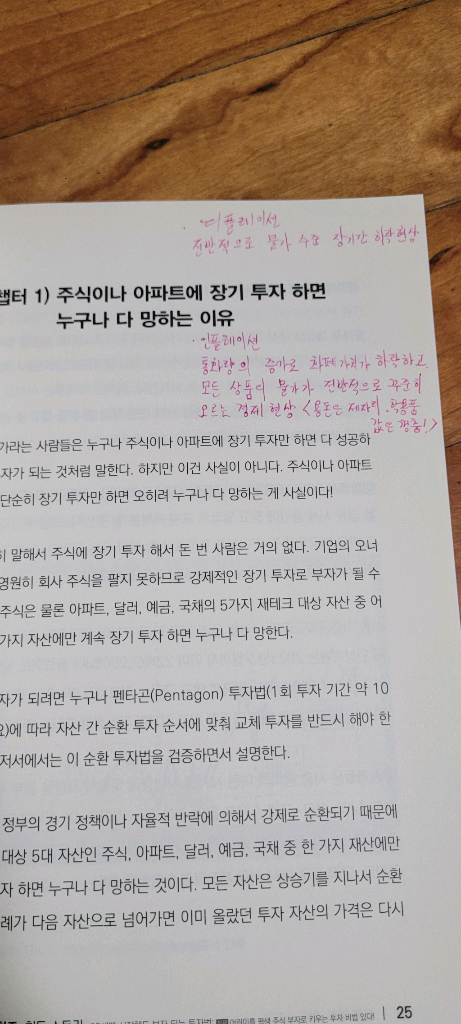 · 디플레이션
전반적으로 물가 수준 장기간 하락현상
챕터 1) 주식이나 아파트에 장기 투자 하면
누구나 다 망하는 이유
· 인플레이션
통화량의 증가로 화폐가치가 하락하고,
모든 상품의 물가가 전반적으로 꾸준히
오르는 경제 현상 <용돈은 제자리, 학용품
값은 껑충!>
가라는 사람들은 누구나 주식이나 아파트에 장기 투자만 하면 다 성공하
자가 되는 것처럼 말한다. 하지만 이건 사실이 아니다. 주식이나 아파트
단순히 장기 투자만 하면 오히려 누구나 다 망하는 게 사실이다!
히 말해서 주식에 장기 투자 해서 돈 번 사람은 거의 없다. 기업의 오너
영원히 회사 주식을 팔지 못하므로 강제적인 장기 투자로 부자가 될 수
주식은 물론 아파트, 달러, 예금, 국채의 5가지 재테크 대상 자산 중 어
가지 자산에만 계속 장기 투자 하면 누구나 다 망한다.
자가 되려면 누구나 펜타곤(Pentagon) 투자법(1회 투자 기간 약 10
요)에 따라 자산 간 순환 투자 순서에 맞춰 교체 투자를 반드시 해야 한
저서에서는 이 순환 투자법을 검증하면서 설명한다.
정부의 경기 정책이나 자율적 반락에 의해서 강제로 순환되기 때문에
대상 5대 자산인 주식, 아파트, 달러, 예금, 국채 중 한 가지 재산에만
자 하면 누구나 다 망하는 것이다. 모든 자산은 상승기를 지나서 순환
례가 다음 자산으로 넘어가면 이미 올랐던 투자 자산의 가격은 다시
어린이를 평생 주식 부자로 키우는 투자 비법 있다! | 25